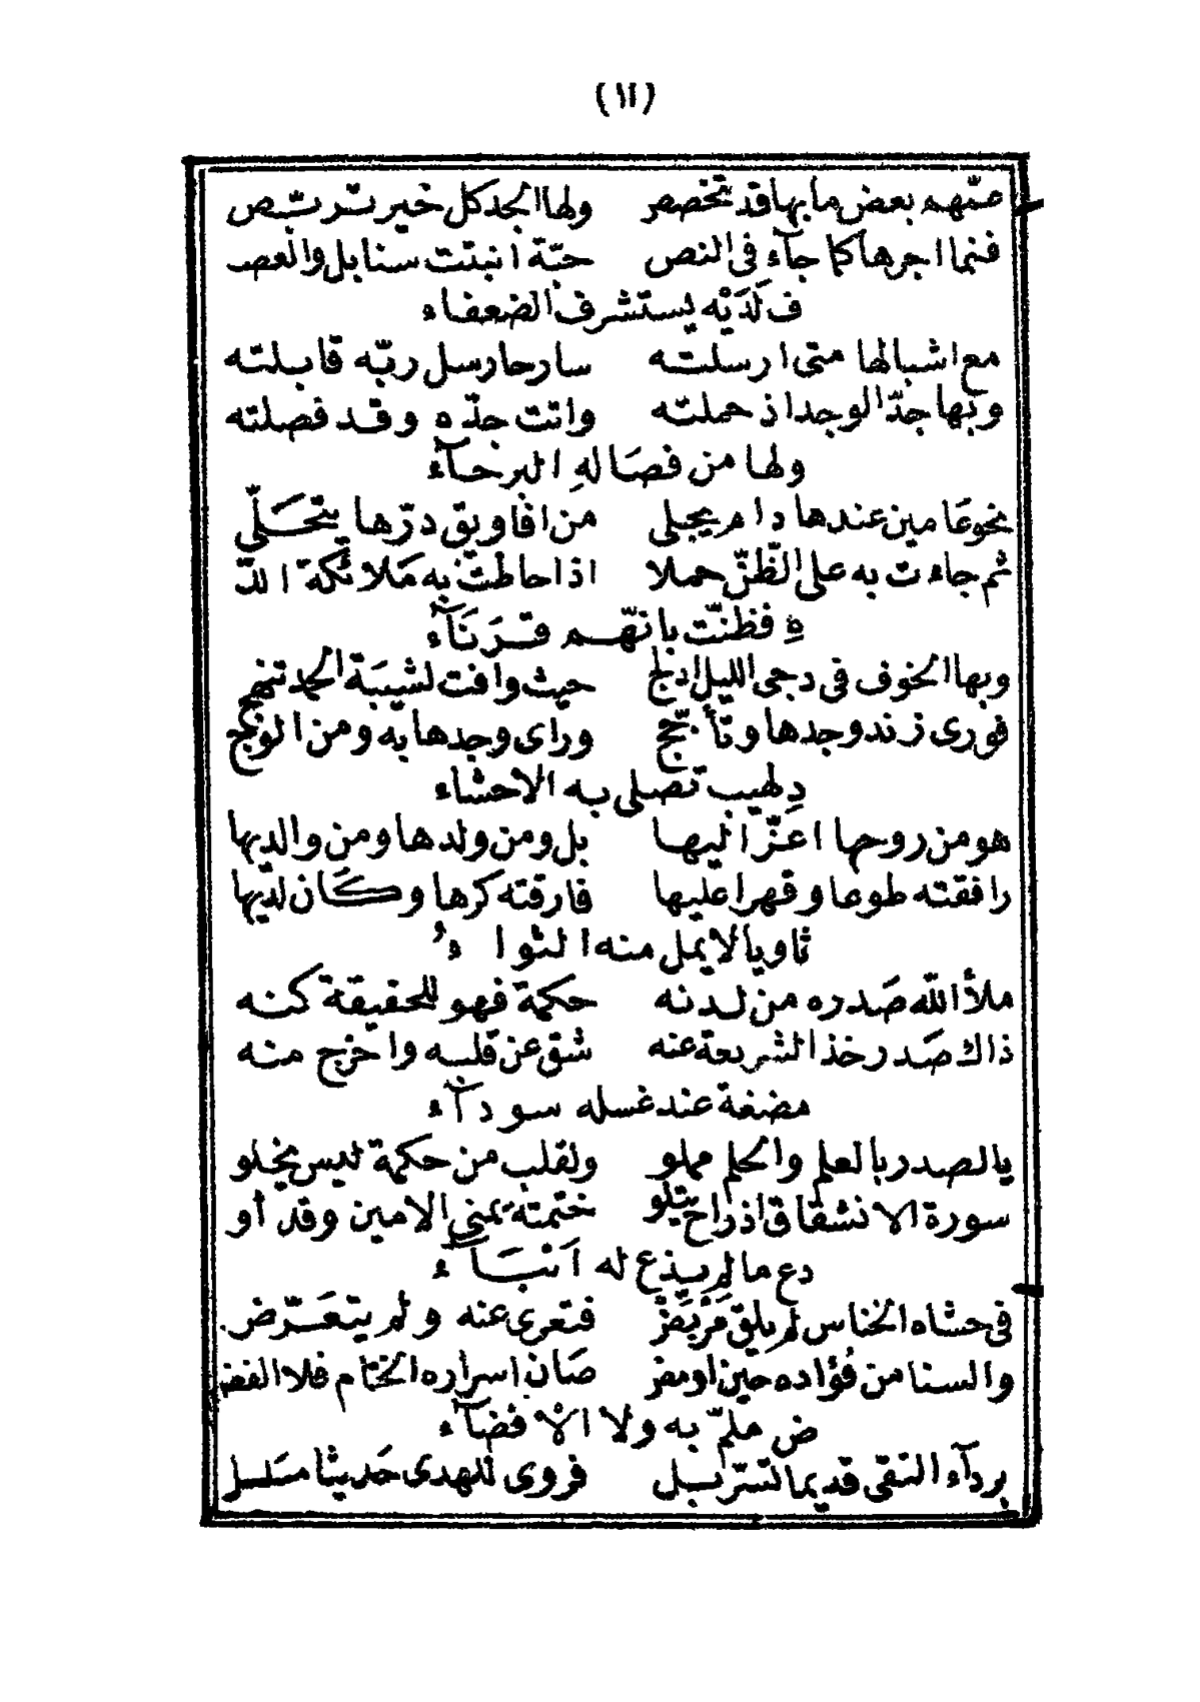 (١٢)
منّهم بعض ما بها قد تخصص ولها الجد كل خير تربّص
فنما اجرها كما جآء في النص حبّة انبتت سنابل والعص
ف لَدَيْه يستشرف الضعفاء
مع اشبالها متى ارسلته سار حا رسل ربّه قابلته
وبها جدّ الوجد اذ حملته واتت جدّه وقد فصلته
ولها من فصَاله البرحآء
نحو عَامين عندها دام يجبلى من افاويق درّها يتحَلّى
ثم جاءت به على الظّنّ حملا اذ احاطت به مَلائكة اللّ
هِ فظنّت بانّهم قرَنَآء
وبها الخوف في دجى الليل ادلج حيث وافت لشيبَة الحمد تنهج
فورى زند وجدها وتأجّج وراى وجدها به ومن الو
دِ لهيب تصلى به الاحشاء
هو من روحها اعزّ اليها بل ومن ولدها ومن والديها
رافقته طوعا وقهرا عليها فارقته كرها وكان لديها
ثاويا لا يمل منه الثواء
ملأ اللّه صَدره من لدنه حكمة فهو للحقيقة كنه
ذاك صَدر خذ الشريعة عنه شق عن قلبه واخرج منه
مضغة عند غسله سودآء
يا لصدر بالعلم والحلم مملو ولقلب من حكمة ليس يخلو
سورة الانشقاق اذ راح يتلو ختمته يمنى الامين وقد أو
دع ما لم يذع له اَنْبَآء
في حشاه الخناس لم يلق مَرْبَضْ فتعرى عنه ولم يتعَرّض
والسنا من فُؤاده حين اومض صَان اسراره الختام فلا الفضـ
ض ملمّ به ولا الافضآء
بردآء التقى قديما تسربل فروى للهدى حَديثا مسلسل